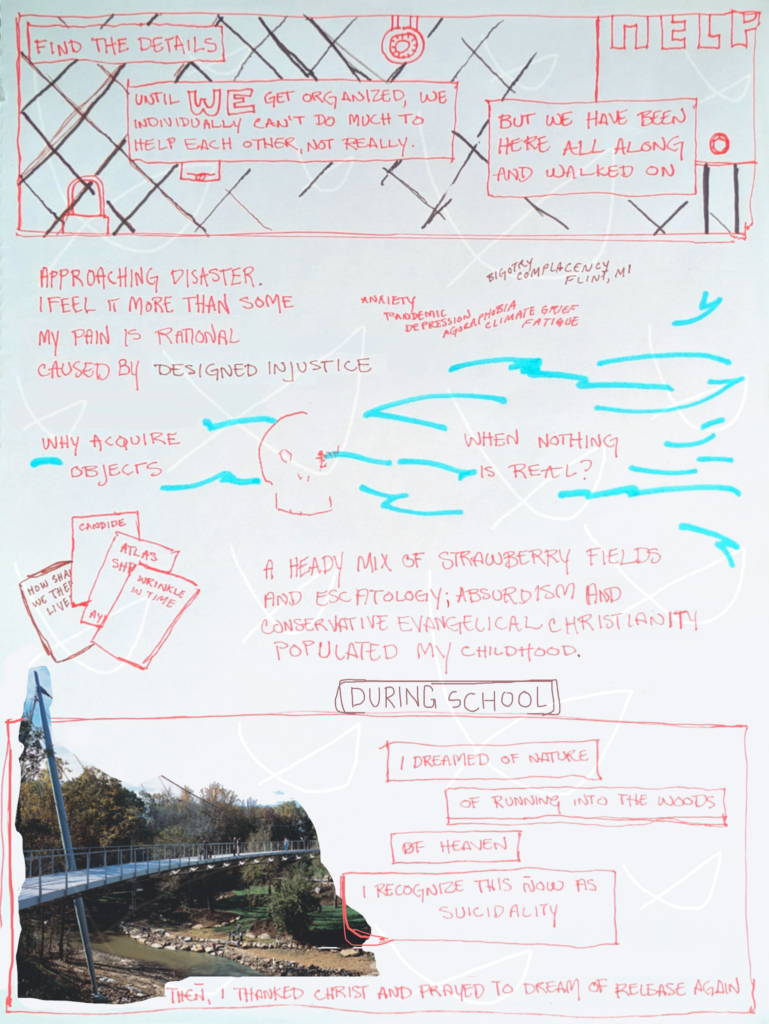 FIND THE DETAILS
HELP
UNTIL WE GET ORGANIZED, WE
INDIVIDUALLY CAN'T DO MUCH TO
HELP EACH OTHER, NOT REALLY.
BUT WE HAVE BEEN
HERE ALL ALONG
AND WALKED ON
APPROACHING DISASTER.
I FEEL IT MORE THAN SOME
MY PAIN IS RATIONAL
CAUSED BY DESIGNED INJUSTICE
BIGOTRY
COMPLACENCY
FLINT, MI
ANXIETY
PANDEMIC
DEPRESSION
AGORAPHOBIA
CLIMATE GRIEF
FATIGUE
WHY ACQUIRE
OBJECTS
WHEN NOTHING
IS REAL?
CANDIDE
ATLAS
SHR
AY
WRINKLE
IN TIME
HOW SHA
WE THE
LIVE
A HEADY MIX OF STRAWBERRY FIELDS
AND ESCATOLOGY; ABSURDISM AND
CONSERVATIVE EVANGELICAL CHRISTIANITY
POPULATED MY CHILDHOOD.
DURING SCHOOL
I DREAMED OF NATURE
OF RUNNING INTO THE WOODS
OF HEAVEN
I RECOGNIZE THIS NOW AS
SUICIDALITY
THEN, I THANKED CHRIST AND PRAYED TO DREAM OF RELEASE AGAIN